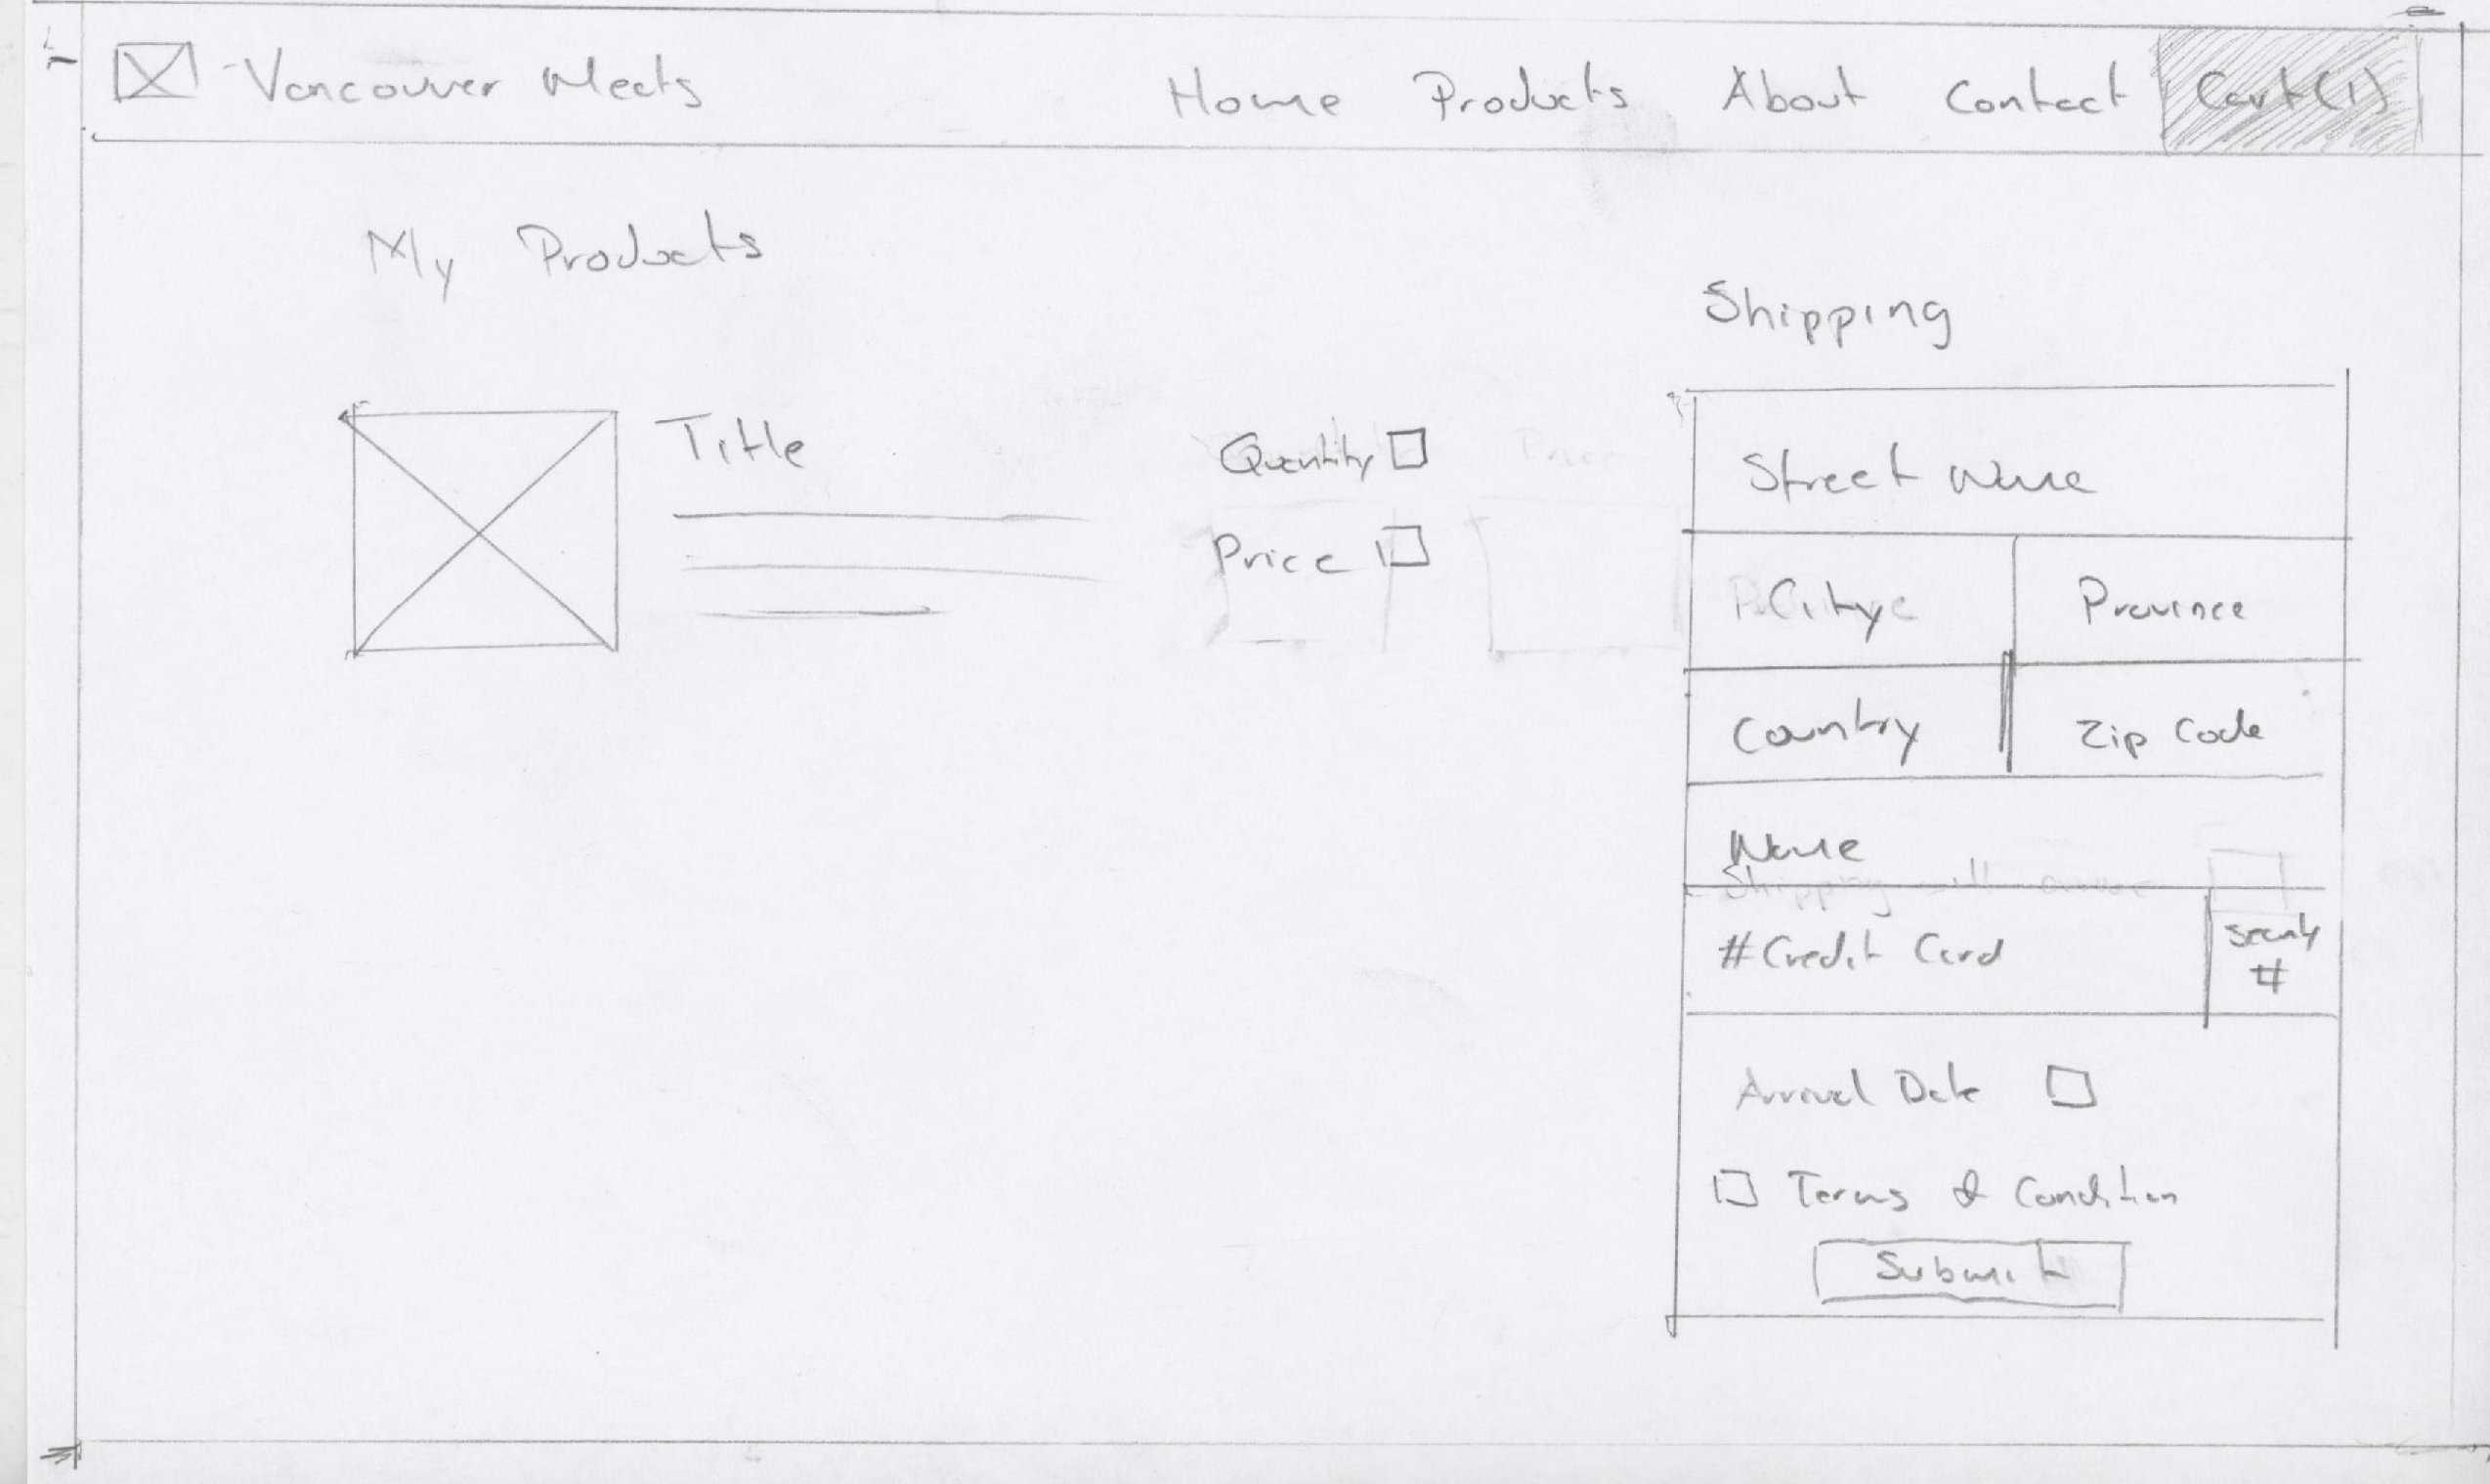 Vancouver Meats
Home Products About Contact Cart(1)
My Products
Shipping
Title
Quantity
Price
Street Name
City Province
Country Zip Code
Name
#Credit Card
#
Arrival Date
Terms & Condition
Submit